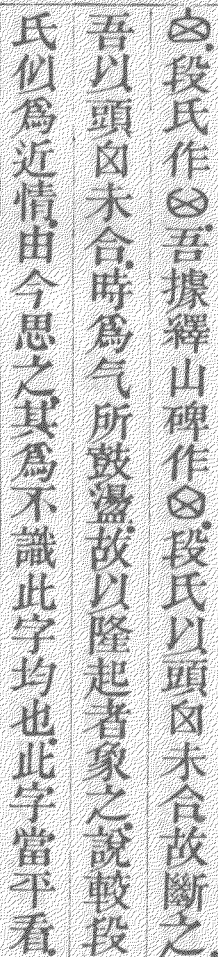 囟段氏作𡇒吾據繹山碑作囟段氏以頭囟未合故斷之
吾以頭囟未合時爲气所鼓盪故以隆起者象之說較段
氏似爲近情由今思之其爲不識此字均也此字當平看